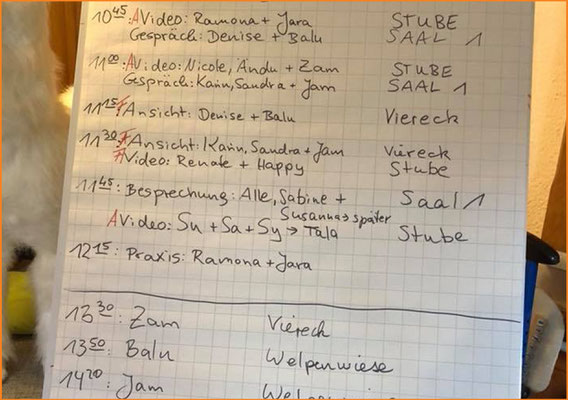 10 45: A Video: Ramona + Jara STUBE
Gespräch: Denise + Balu SAAL 1
11 00: A Video: Nicole, Andu + Zam STUBE
Gespräch: Karin, Sandra + Jam SAAL 1
11 15: F Ansicht: Denise + Balu Viereck
11 30: F Ansicht: Karin, Sandra + Jam Viereck
A Video: Renate + Happy Stube
11 45: Besprechung: Alle, Sabine + Saal 1
Susanna → später
A Video: Su + Sa + Sy → Tala Stube
12 15: Praxis: Ramona + Jara
13 30: Zam Viereck
13 50: Balu Welpenwiese
14 20: Jam